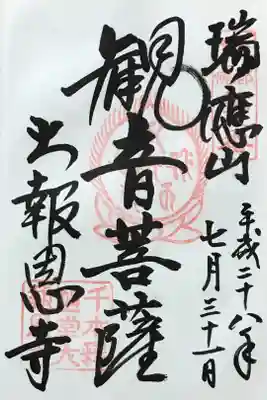 瑞應山
平成二十八年
七月三十一日
観音菩薩
大報恩寺